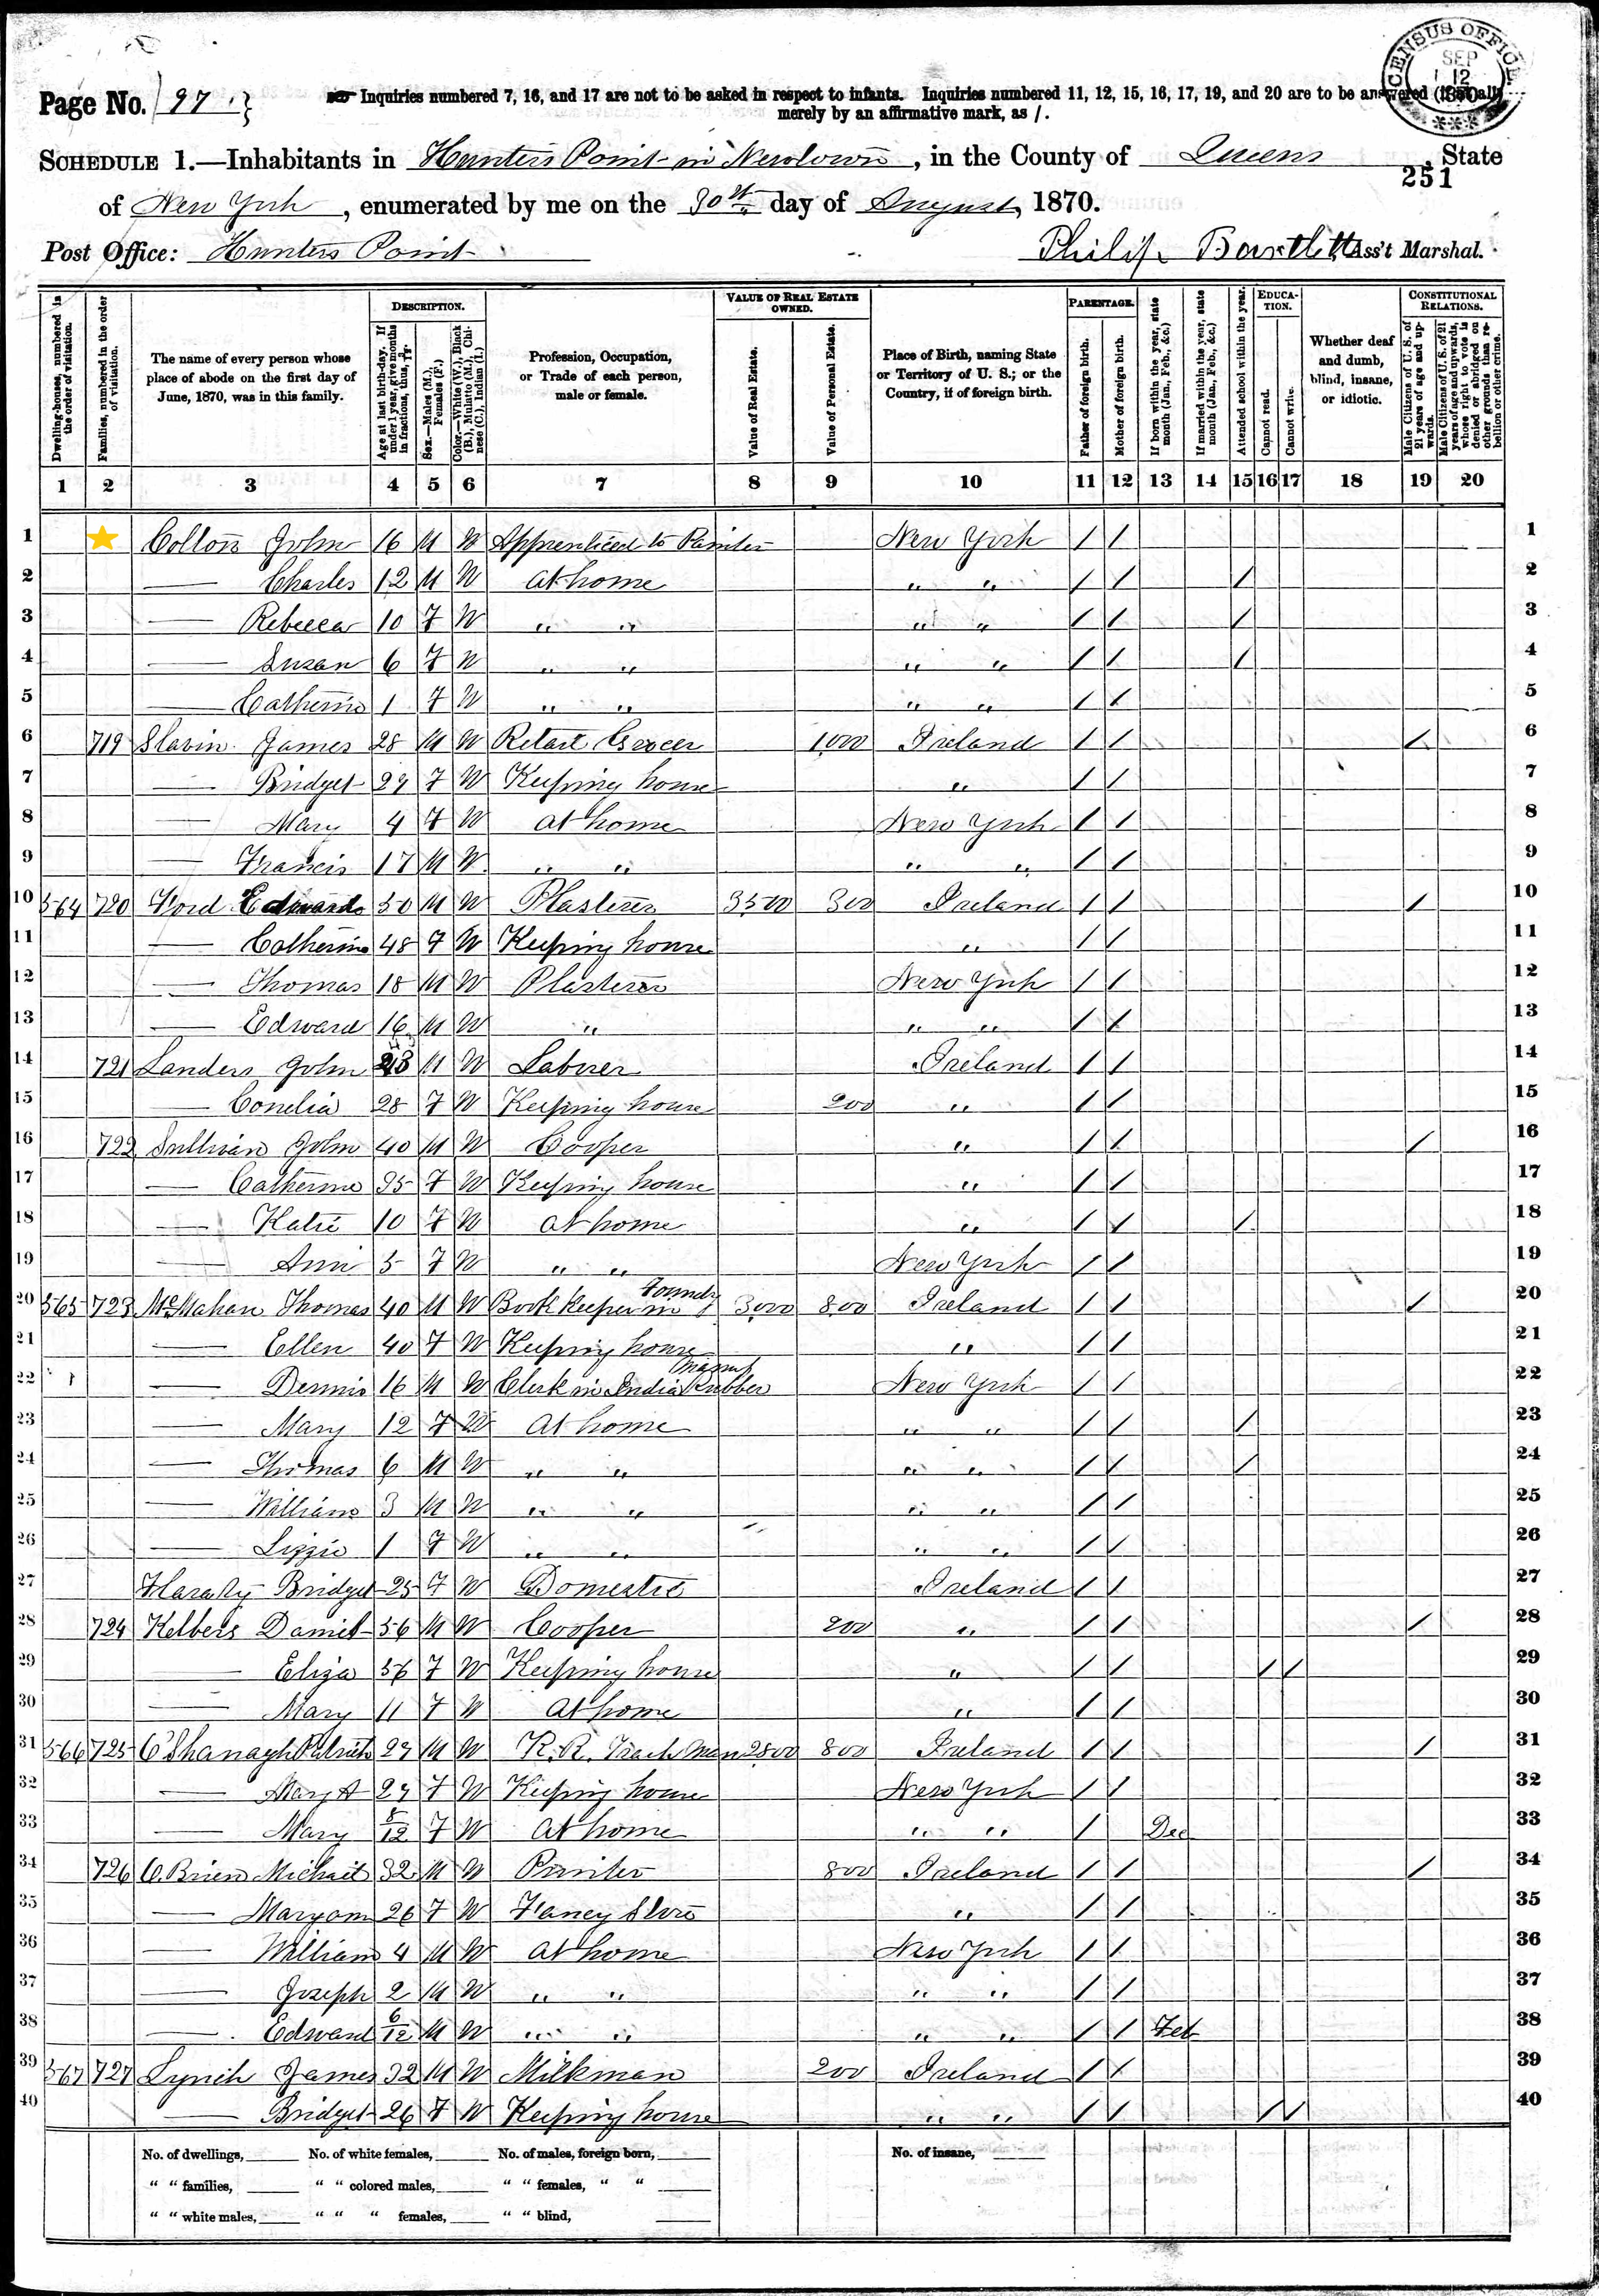 CENSUS OFFICE SEP 12 1870
Page No. 97
Inquiries numbered 7, 16, and 17 are not to be asked in respect to infants. Inquiries numbered 11, 12, 15, 16, 17, 19, and 20 are to be answered (if at all)
merely by an affirmative mark, as /.
SCHEDULE 1.—Inhabitants in Hunters Point in Newtown, in the County of Queens, State
251
of New York, enumerated by me on the 30th day of August, 1870.
Post Office: Hunters Point Philip Bartlett, Ass't Marshal.
Dwelling-houses, numbered in the order of visitation.
Families, numbered in the order of visitation.
The name of every person whose place of abode on the first day of June, 1870, was in this family.
DESCRIPTION.
Age at last birth-day. If under 1 year, give months in fractions, thus, 3/12.
Sex.—Males (M.), Females (F.)
Color.—White (W.), Black (B.), Mulatto (M.), Chinese (C.), Indian (I.)
Profession, Occupation, or Trade of each person, male or female.
VALUE OF REAL ESTATE OWNED.
Value of Real Estate.
Value of Personal Estate.
Place of Birth, naming State or Territory of U. S.; or the Country, if of foreign birth.
PARENTAGE.
Father of foreign birth.
Mother of foreign birth.
If born within the year, state month (Jan., Feb., &c.)
If married within the year, state month (Jan., Feb., &c.)
Attended school within the year.
EDUCATION.
Cannot read.
Cannot write.
Whether deaf and dumb, blind, insane, or idiotic.
CONSTITUTIONAL RELATIONS.
Male Citizens of U. S. of 21 years of age and upwards.
Male Citizens of U. S. of 21 years of age and upwards, whose right to vote is denied or abridged on other grounds than rebellion or other crime.
1 2 3 4 5 6 7 8 9 10 11 12 13 14 15 16 17 18 19 20
1 John 16 M W Apprenticed to Painter New York / / 1
2 — Charles 12 M W At home " " / / / 2
3 — Rebecca 10 F W " " " " / / / 3
4 — Susan 6 F W " " " " / / / 4
5 — Catherine 1 F W " " " " / / 5
6 719 Slavin James 28 M W Retail Grocer 1,000 Ireland / / / 6
7 — Bridget 27 F W Keeping house " / / 7
8 — Mary 4 F W At home New York / / 8
9 — Francis 17 M W " " " " / / 9
10 564 720 Ford Edward 50 M W Plasterer 3500 300 Ireland / / / 10
11 — Catherine 48 F W Keeping house " / / 11
12 — Thomas 18 M W Plasterer New York / / 12
13 — Edward 16 M W " " " / / 13
14 721 Landers John M W Laborer Ireland / / 14
15 — Conelia 28 F W Keeping house 200 " / / 15
16 722 Sullivan John 40 M W Cooper " / / / 16
17 — Catherine 35 F W Keeping house " / / 17
18 — Katie 10 F W At home " / / / 18
19 — Ann 5 F W " " New York / / 19
20 565 723 McMahan Thomas 40 M W Book keeper in Foundry 3,000 800 Ireland / / / 20
21 — Ellen 40 F W Keeping house " / / 21
22 — Dennis 16 M W Clerk in India Rubber Manuf New York / / 22
23 — Mary 12 F W At home " " / / / 23
24 — Thomas 6 M W " " " " / / / 24
25 — William 3 M W " " " " / / 25
26 — Lizzie 1 F W " " " " / / 26
27 Bridget 25 F W Domestic Ireland / / 27
28 724 Kelbers Daniel 56 M W Cooper 200 " / / / 28
29 — Eliza 56 F W Keeping house " / / / / 29
30 — Mary 11 F W At home " / / 30
31 566 725 O'Shanagh Patrick 29 M W R. R. Track Man 2800 800 Ireland / / / 31
32 — Mary A 27 F W Keeping house New York / / 32
33 — Mary 8/12 F W At home " " / Dec 33
34 726 O.Brien Michael 32 M W 800 Ireland / / / 34
35 — Maryann 26 F W Fancy Store " / / 35
36 — William 4 M W At home New York / / 36
37 — Joseph 2 M W " " " " / / 37
38 — Edward 6/12 M W " " " " / / Feb 38
39 567 727 Lynch James 32 M W Milkman 200 Ireland / / 39
40 — Bridget 26 F W Keeping house " " / / / / 40
No. of dwellings, No. of white females, No. of males, foreign born, No. of insane,
" " families, " " colored males, " " females, " "
" " white males, " " " females, " " blind,